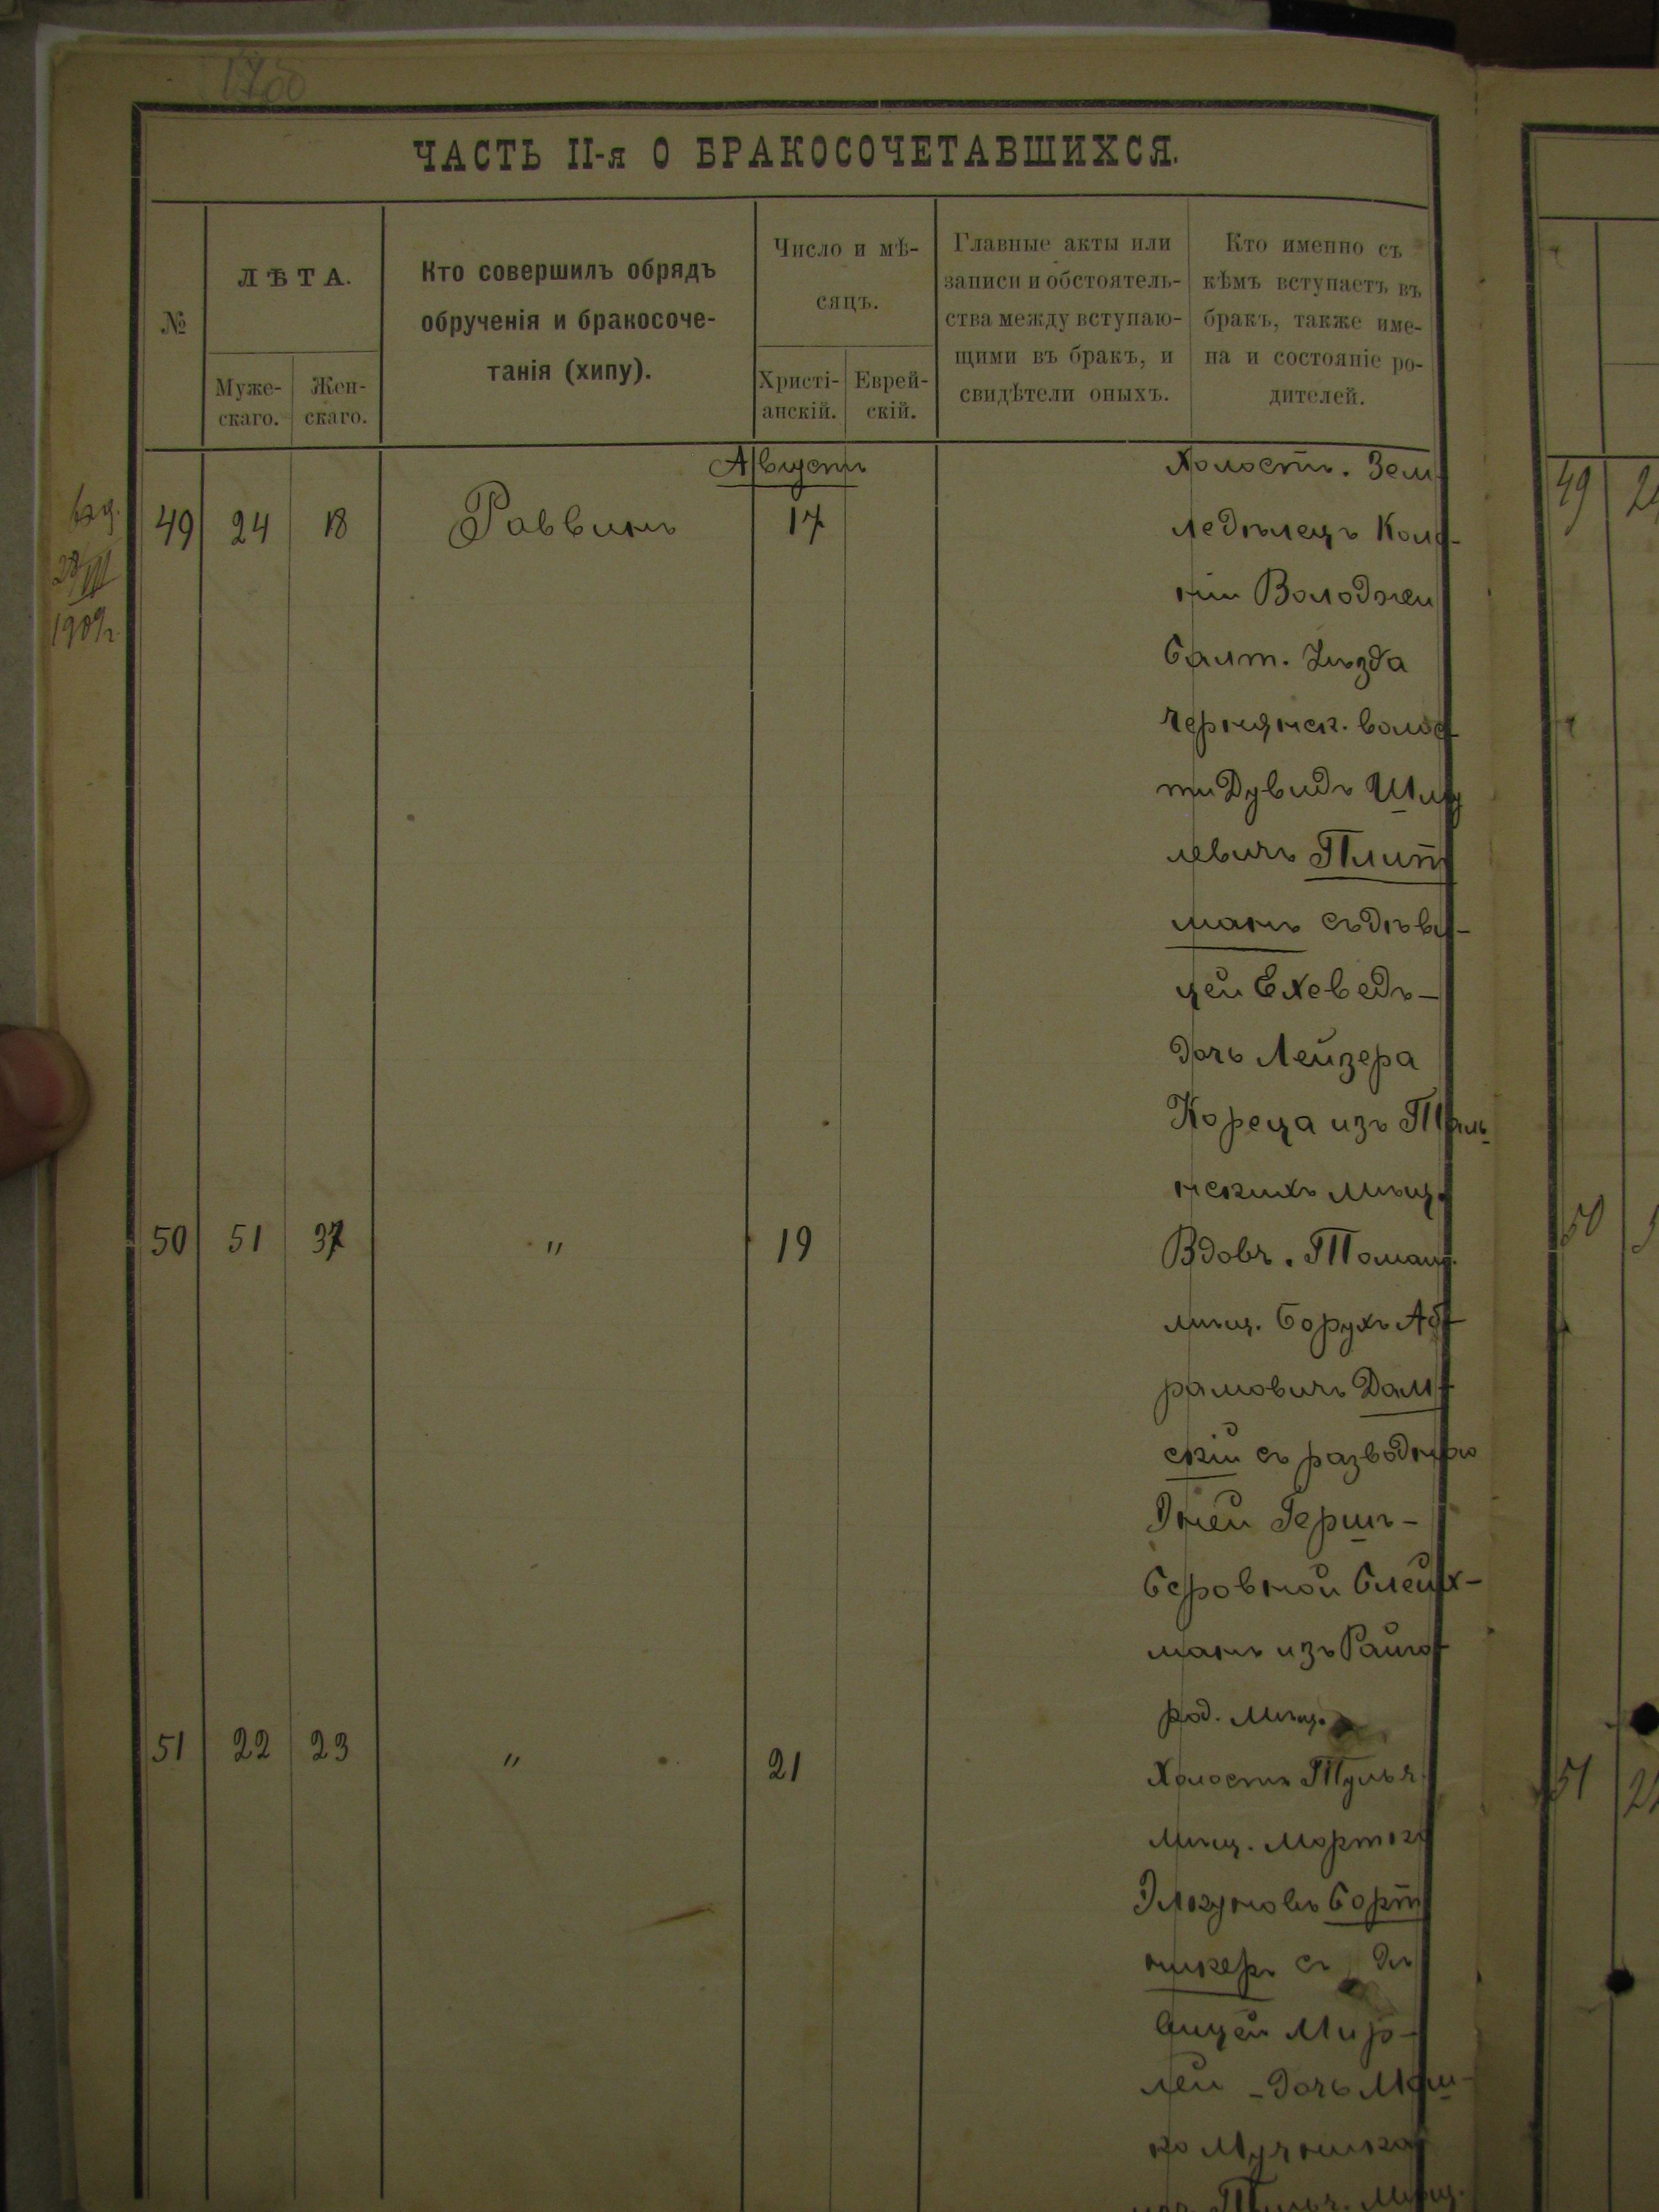 1700
ЧАСТЬ II-я О БРАКОСОЧЕТАВШИХСЯ.
№
ЛѢТА.
Муже-
скаго.
Жен-
скаго.
Кто совершилъ обрядъ
обрученія и бракосоче-
танія (хипу).
Число и мѣ-
сяцъ.
Христі-
анскій.
Еврей-
скій.
Главные акты или
записи и обстоятель-
ства между вступаю-
щими въ бракъ, и
свидѣтели оныхъ.
Кто именно съ
кѣмъ вступаетъ въ
бракъ, также име-
на и состояніе ро-
дителей.
Августъ
28/III
1909г.
49 24 18 Раввинъ 17
Холостъ. Зем
ледѣлецъ Коло-
ніи
Балт. уѣзда
волос
ти Дувидъ Шму
левичъ Плит
манъ съ дѣви-
цей Ехеведъ-
дочь Лейзера
Кореца изъ
скихъ мѣщ.
50 51 37 " 19
Вдовъ.
мѣщ. Борухъ Аб
рамовичъ Дам
скій съ разводкою
Эней Гершъ-
Беровной Блейх-
манъ изъ Райго
род. мѣщ.
51 22 23 " 21
Холостъ Тульч.
мѣщ.
Борт
никеръ съ дѣ
вицей Мир-
лей - дочь Мош
ко
Тульч. мѣщ.
49 2
50
51 2